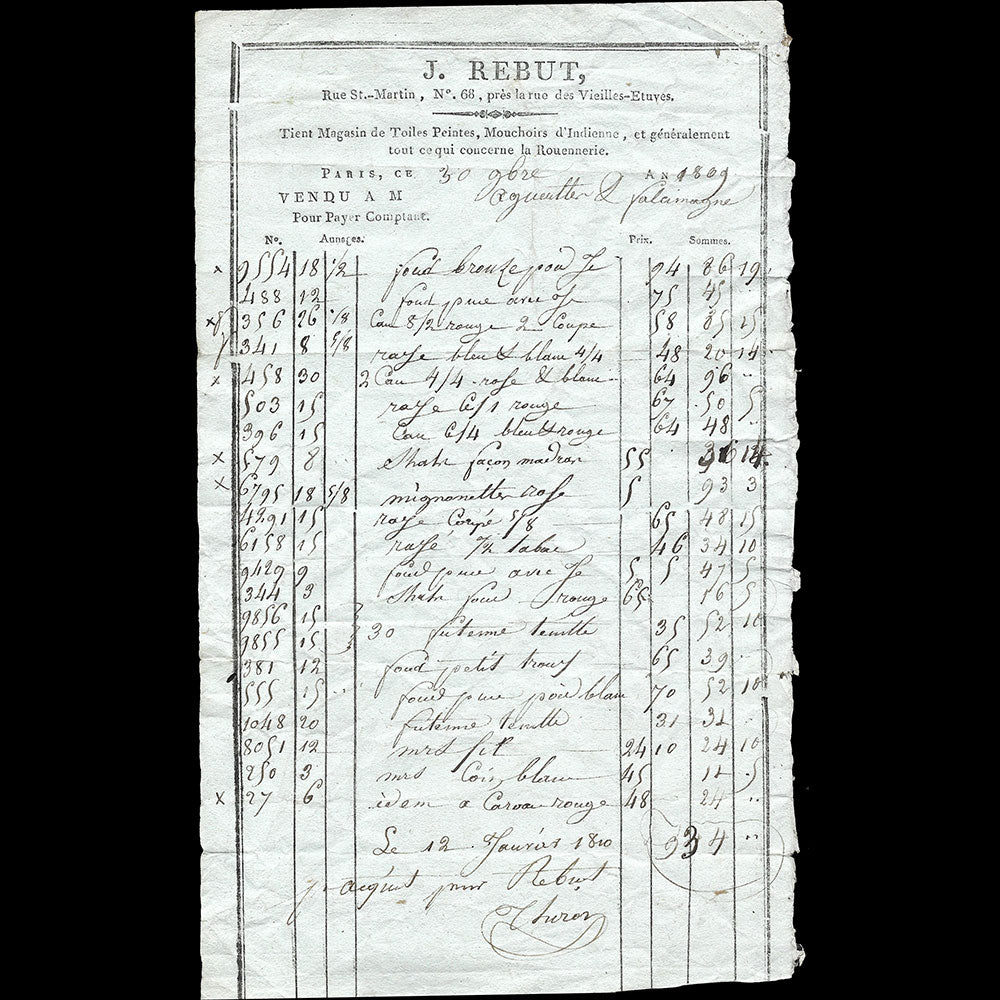 J. REBUT,
Rue St.-Martin, N°. 68, près la rue des Vieilles-Etuves.
Tient Magasin de Toiles Peintes, Mouchoirs d'Indienne, et généralement
tout ce qui concerne la Rouennerie.
PARIS, CE 30 9bre AN 1809
VENDU A M &
Pour Payer Comptant.
N°. Aunages. Prix. Sommes.
x 9554 18 1/2 fond bronze 94 86 19
488 12 fond puce avec 75 45
x 356 26 1/8 8/2 rouge 2 Coupe 58 15
341 8 5/8 raye bleu & blanc 4/4 48 20 14
x 458 30 2 4/4 rose & blanc 64 96 ..
503 15 raye 6/1 rouge 67 50 5
396 15 6/4 bleu & rouge 64 48 ..
x 579 8 façon madras 55
x 6795 18 5/8 mignonettes rose 5 93 3
4291 15 raye Coupé 5/8 65 48 15
6158 15 rayé 7/2 tabac 46 34 10
9429 9 fond puce avec 5 5 47 5
344 3 fond rouge 65 16 5
9856 15
9855 15 30 futerme 35 52 10
381 12 fond petit trous 65 39 ..
555 15 fond puce pois blanc 70 52 10
1048 20 futerme 31 31
8051 12 mrs fil 24 10 24 10
250 3 mrs Coin blanc 45 11 5
x 27 6 idem a rouge 48 24 ..
934 ..
Le 12 Janvier 1810
acquit pour Rebut